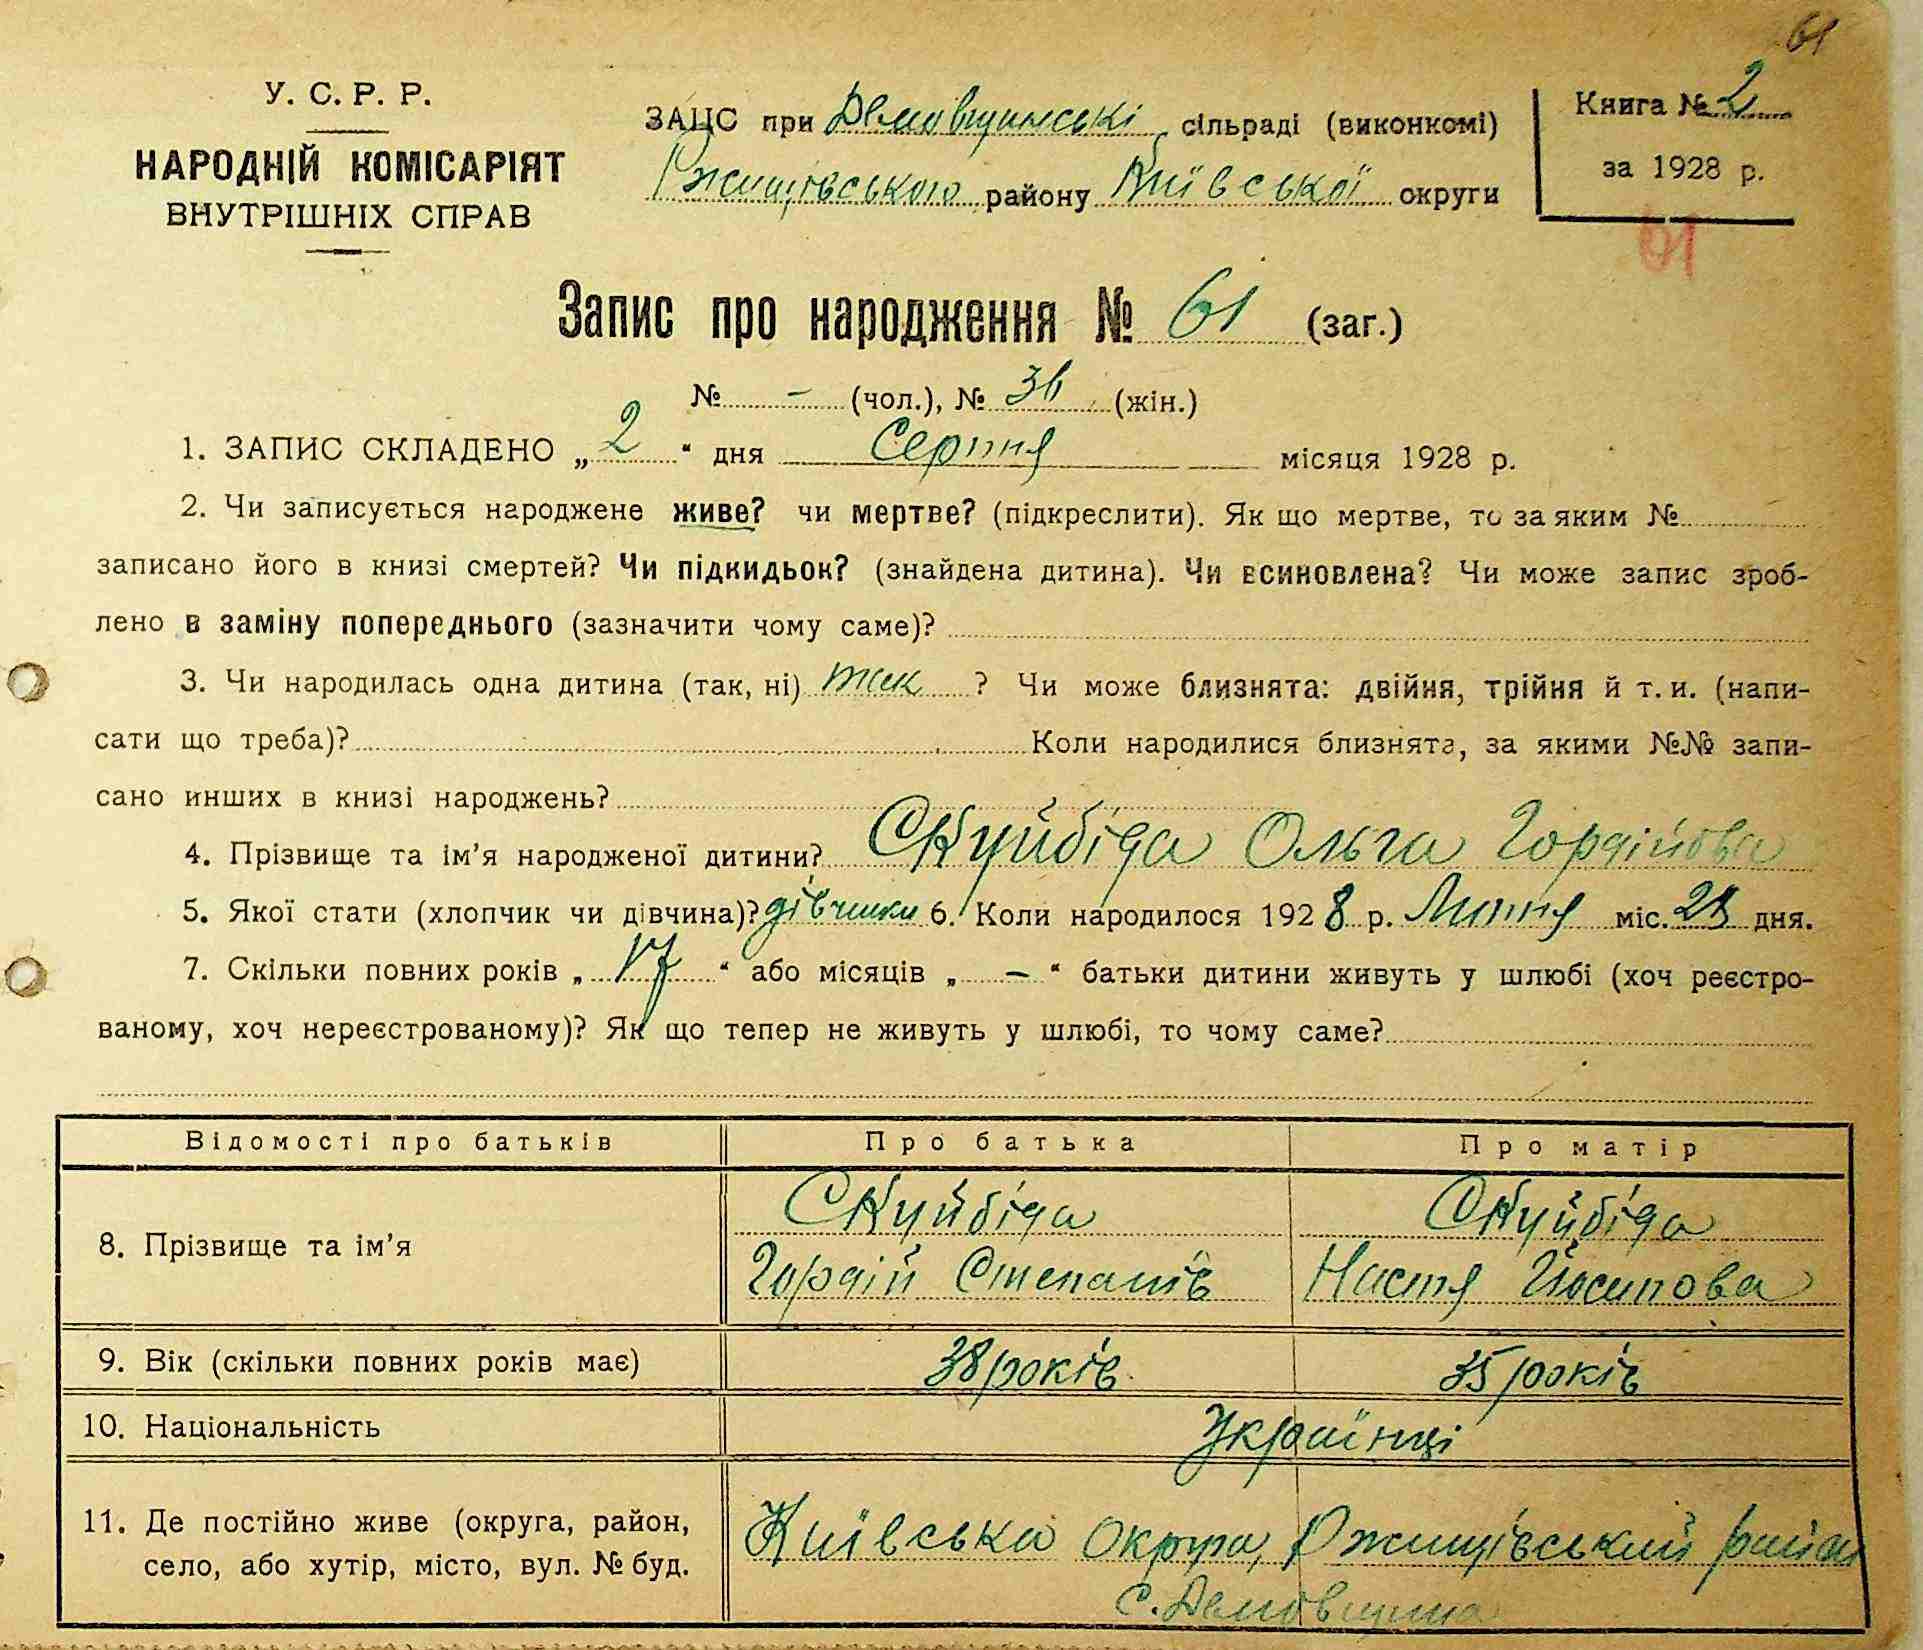 61
У. С. Р. Р.
НАРОДНІЙ КОМІСАРІЯТ
ВНУТРІШНІХ СПРАВ
ЗАЦС при Демовщинські сільраді (виконкомі)
Ржищівського району Київської округи
Книга № 2
за 1928 р.
61
Запис про народження № 61 (заг.)
№ - (чол.), № 36 (жін.)
1. ЗАПИС СКЛАДЕНО „2“ дня Серпня місяця 1928 р.
2. Чи записується народжене живе? чи мертве? (підкреслити). Як що мертве, то за яким №
записано його в книзі смертей? Чи підкидьок? (знайдена дитина). Чи всиновлена? Чи може запис зроб-
лено в заміну попереднього (зазначити чому саме)?
3. Чи народилась одна дитина (так, ні) так ? Чи може близнята: двійня, трійня й т. и. (напи-
сати що треба)? Коли народилися близнята, за якими №№ запи-
сано инших в книзі народжень?
4. Прізвище та ім’я народженої дитини? Скуйбіда Ольга Гордійова
5. Якої стати (хлопчик чи дівчина)? дівчинки 6. Коли народилося 1928 р. Липня міс. дня.
7. Скільки повних років „17“ або місяців „-“ батьки дитини живуть у шлюбі (хоч реєстро-
ваному, хоч нереєстрованому)? Як що тепер не живуть у шлюбі, то чому саме?
Відомості про батьків Про батька Про матір
8. Прізвище та ім’я
Скуйбіда Скуйбіда
Гордій Степанів Настя Йосипова
9. Вік (скільки повних років має) 38 років 35 років
10. Національність Українці
11. Де постійно живе (округа, район,
село, або хутір, місто, вул. № буд.
Київська округа, Ржищівський район
с. Демовщина